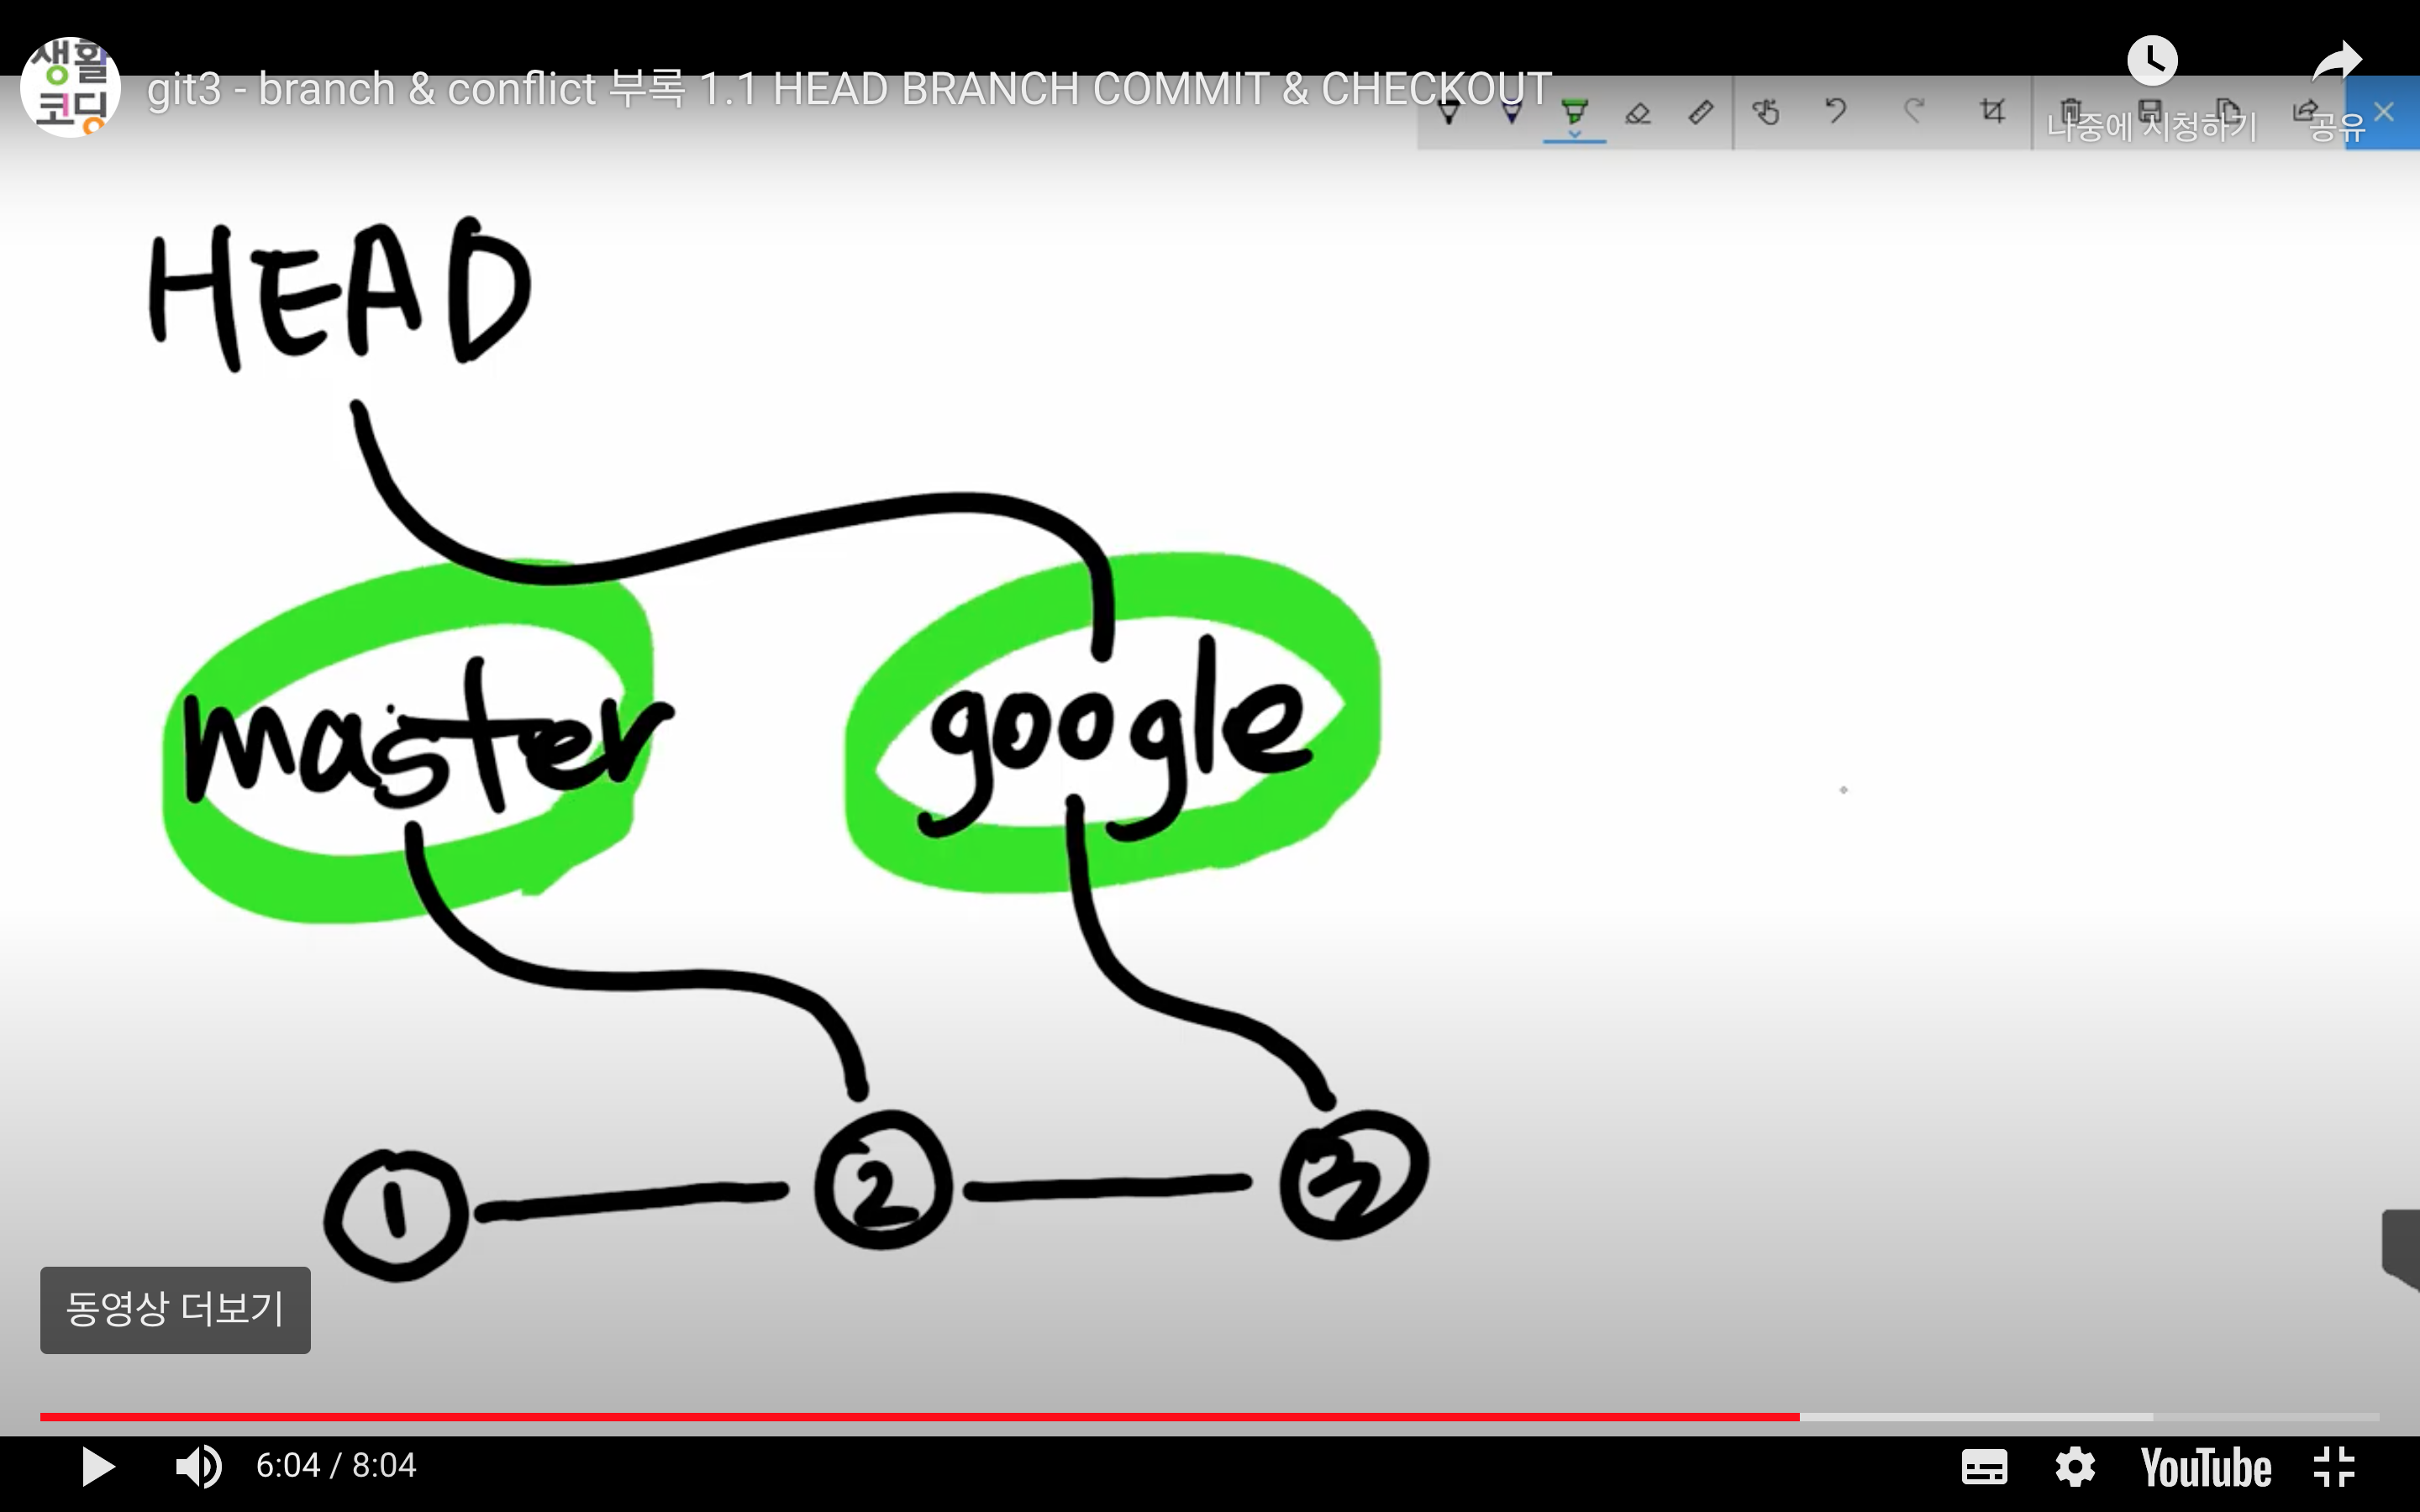 생활
코딩
git3 - branch & conflict 부록 1.1 HEAD BRANCH COMMIT & CHECKOUT
나중에 시청하기
공유
HEAD
master
google
1
2
3
동영상 더보기
6:04 / 8:04
YouTube